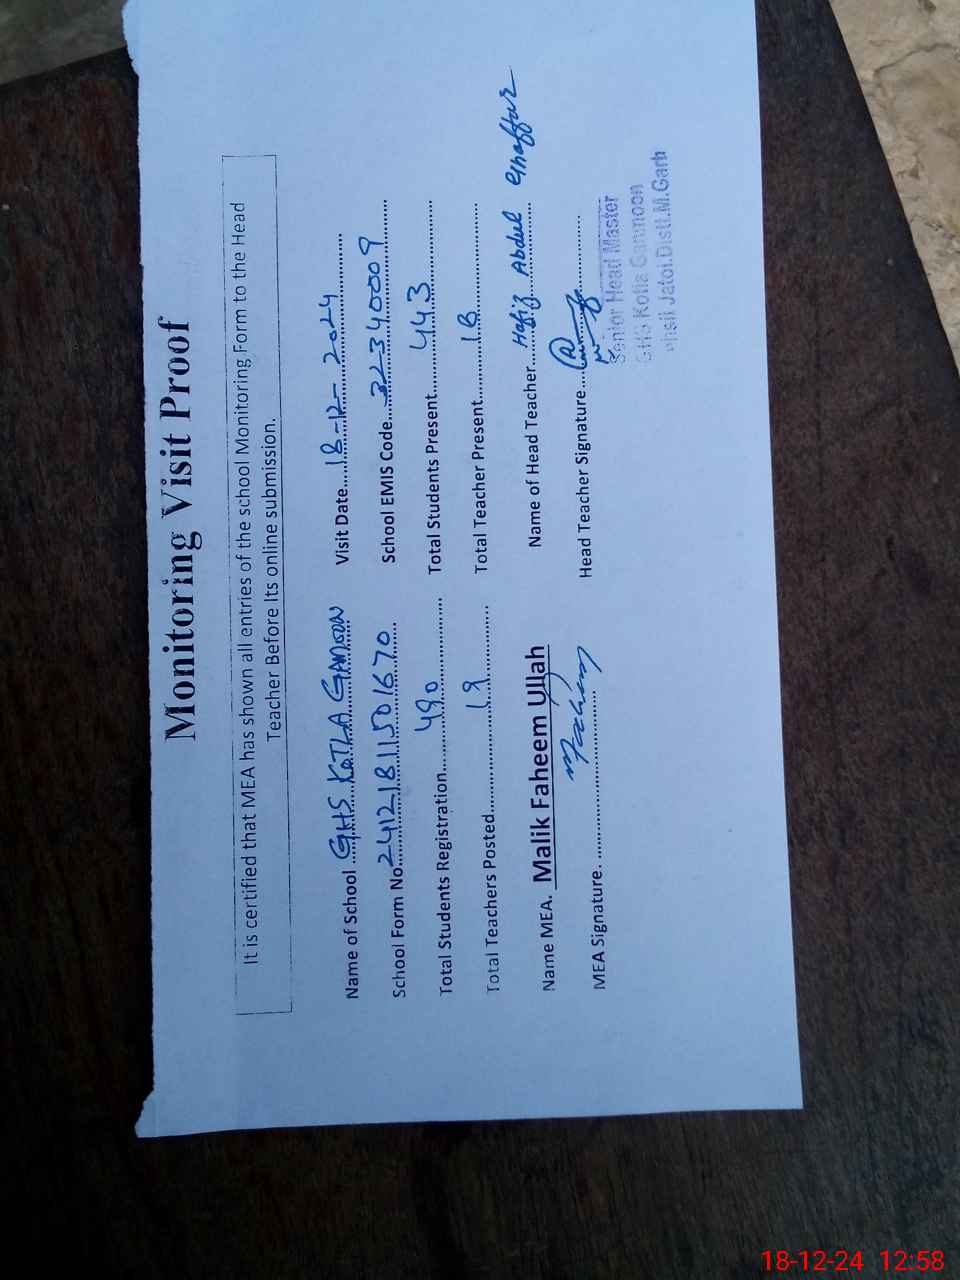 Monitoring Visit Proof
It is certified that MEA has shown all entries of the school Monitoring Form to the Head
Teacher Before Its online submission.
Name of School ....GHS KOTLA GAMOON Visit Date....18-12-2024
School Form No.24121811501670 School EMIS Code....32340009
Total Students Registration....490 Total Students Present....443
Total Teachers Posted....19 Total Teacher Present....18
Name MEA. Malik Faheem Ullah Name of Head Teacher....Hafiz Abdul Ghaffar
MEA Signature. .... Faheem Head Teacher Signature....
Senior Head Master
GHS Kotla Gammoon
Tehsil Jatoi.Distt.M.Garh
18-12-24 12:58